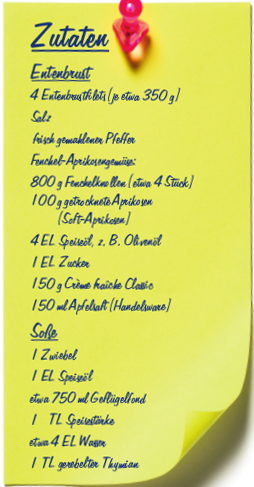 Zutaten
Entenbrust
4 Entenbrustfilets (je etwa 350 g)
Salz
frisch gemahlener Pfeffer
Fenchel-Aprikosengemüse:
800 g Fenchelknollen (etwa 4 Stück)
100 g getrocknete Aprikosen
(Soft-Aprikosen)
4 EL Speiseöl, z. B. Olivenöl
1 EL Zucker
150 g Crème fraîche Classic
150 ml Apfelsaft (Handelsware)
Soße
1 Zwiebel
1 EL Speiseöl
etwa 750 ml Geflügelfond
1 TL Speisestärke
etwa 4 EL Wasser
1 TL gerebelter Thymian